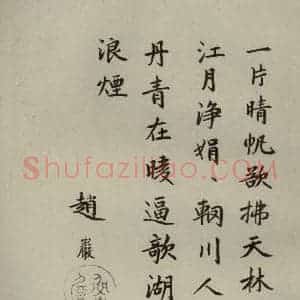 一片晴帆欲拂天林
江月净娟、輞川人
丹青在暖逼歌湖
浪煙
趙巖
Shufazidiao.COM